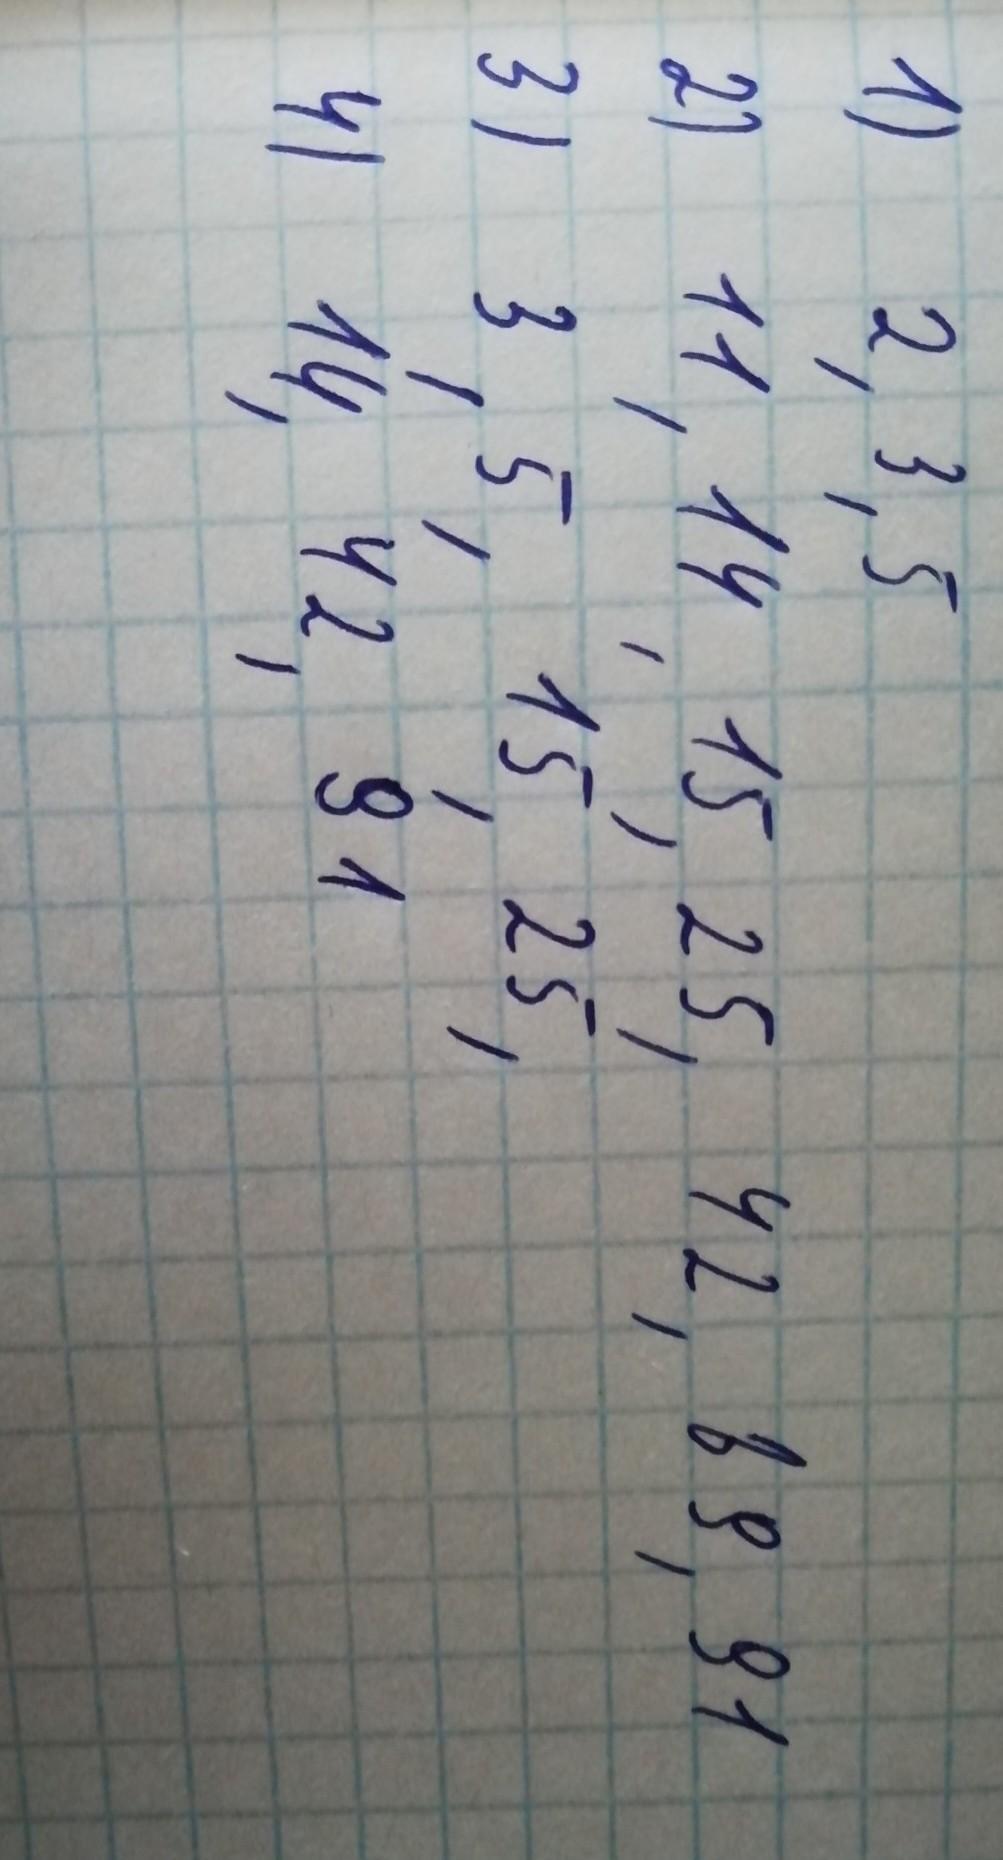 1) 2, 3, 5
2) 11, 14, 15, 25, 42, 69, 91
3) 3, 5, 15, 25,
4) 14, 42, 91